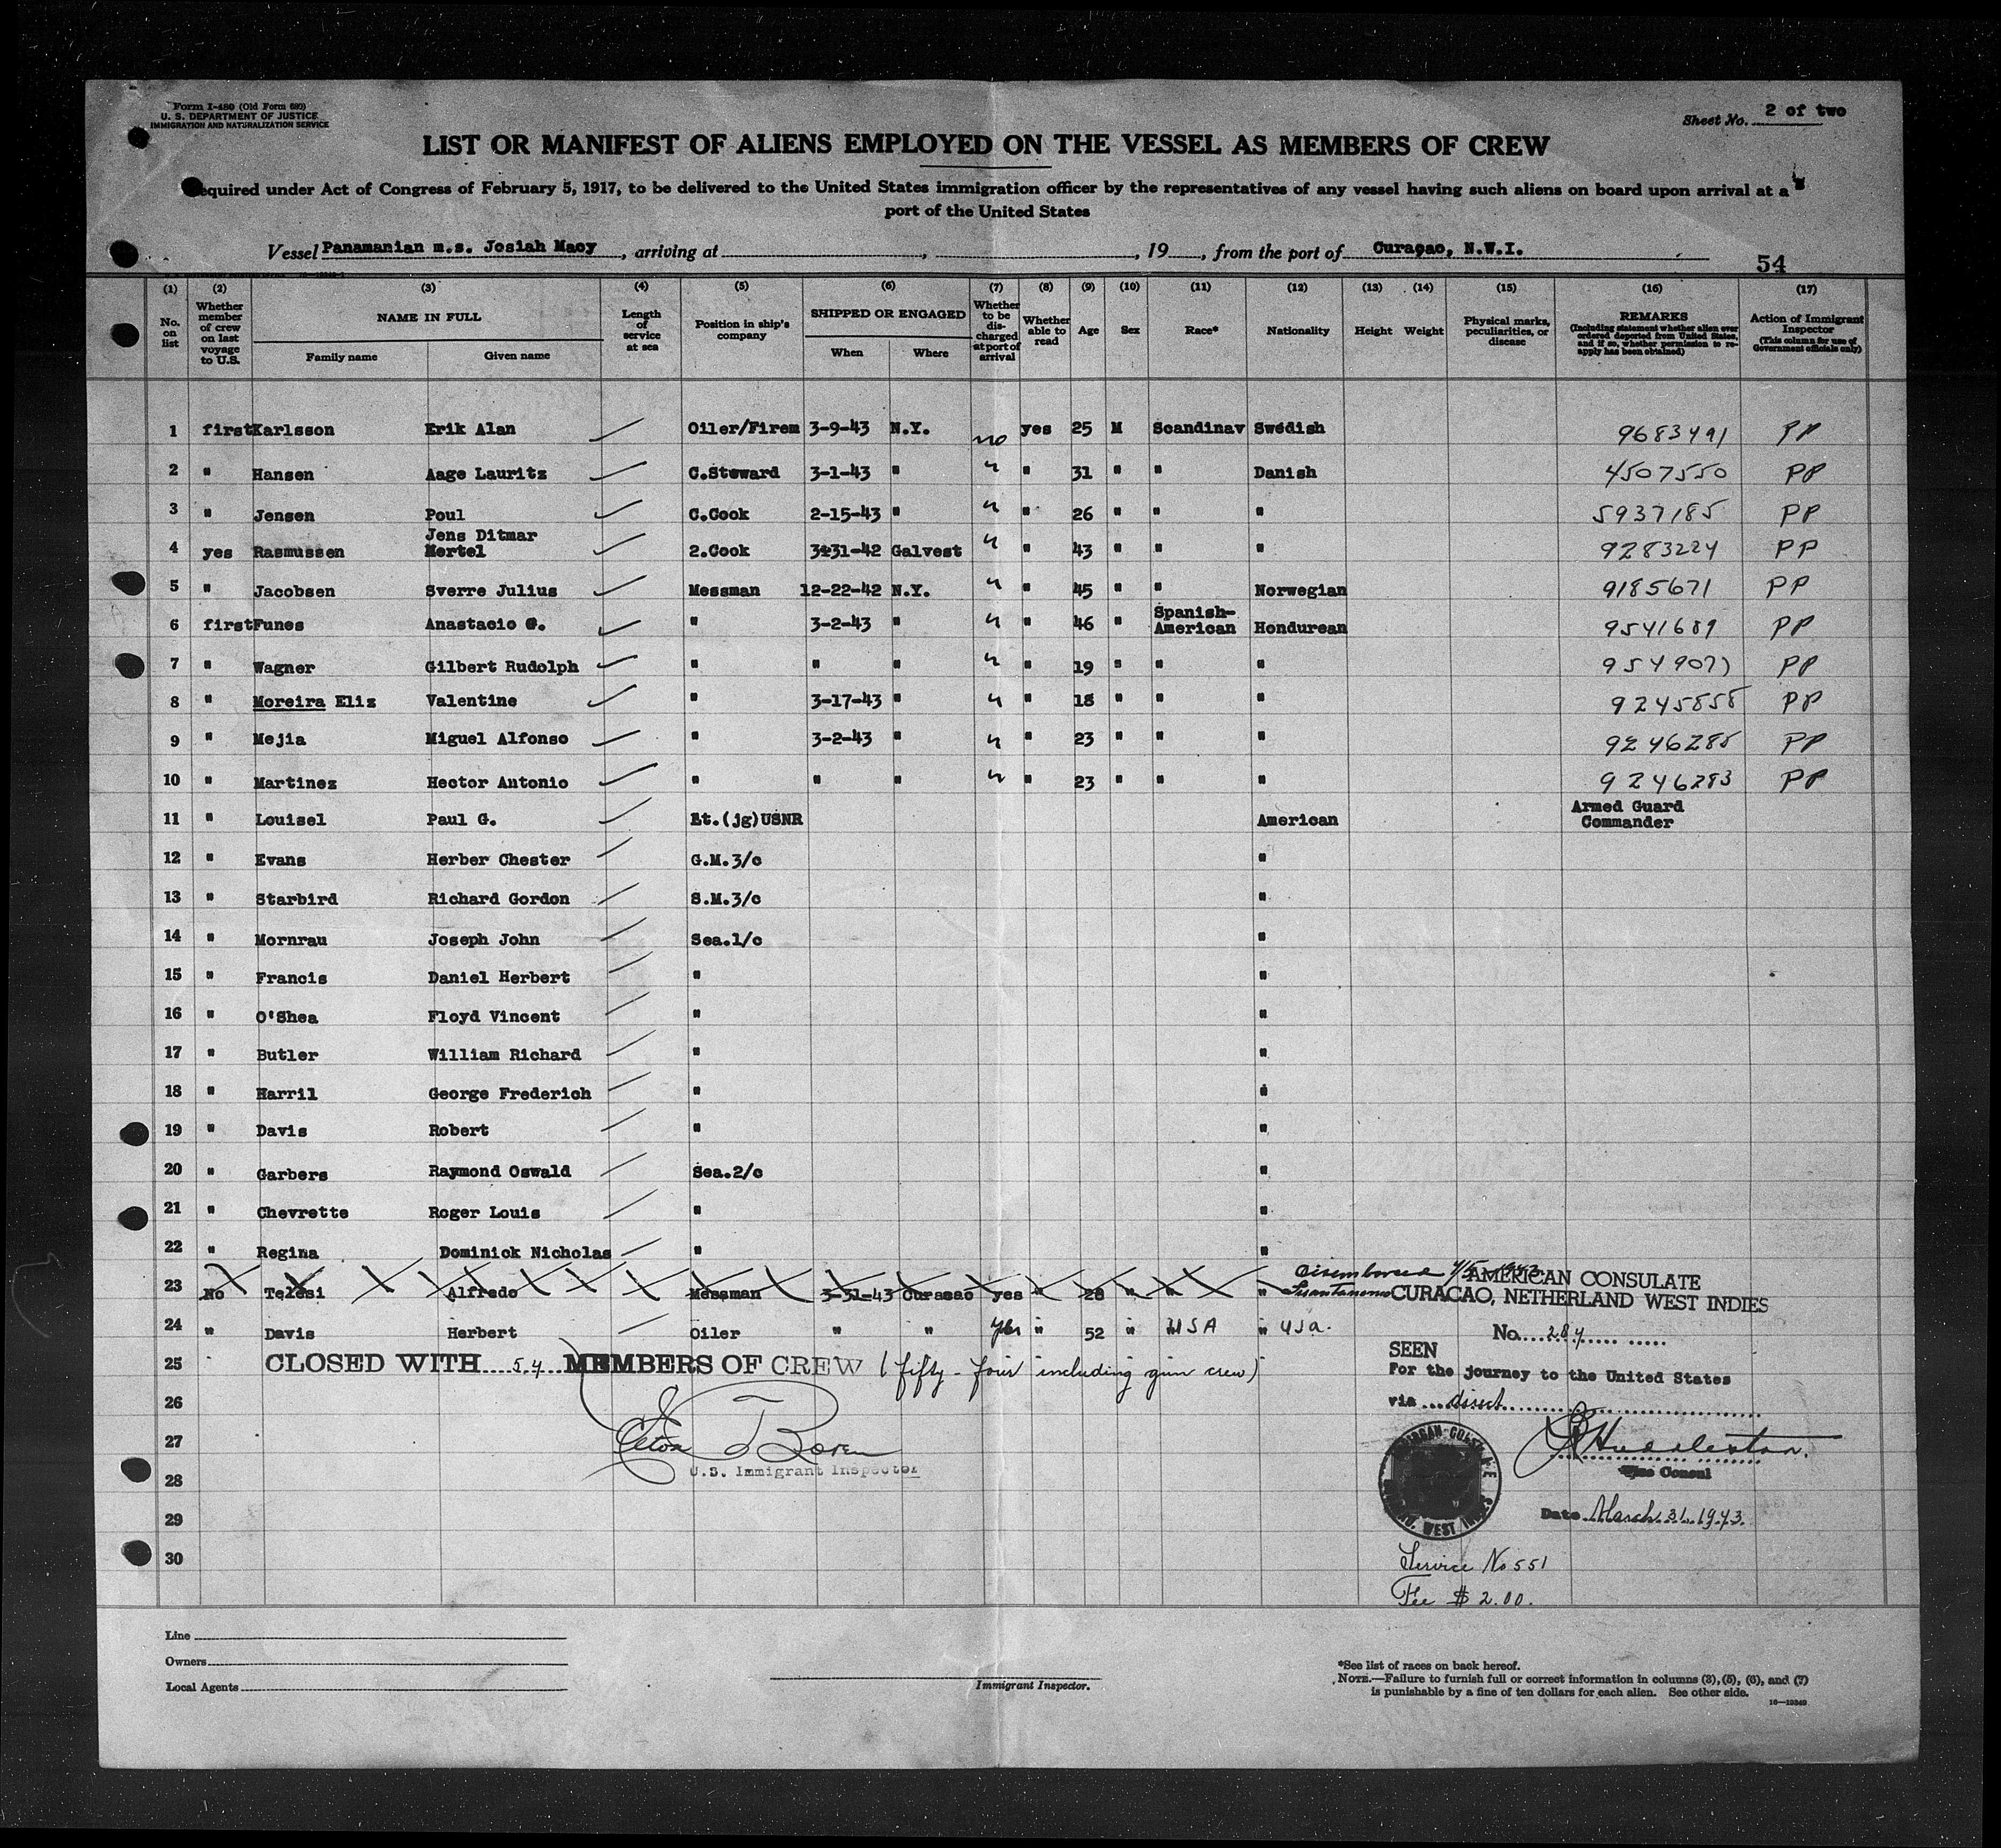 Form I-480 (Old Form 689)
U. S. DEPARTMENT OF JUSTICE
IMMIGRATION AND NATURALIZATION SERVICE
Sheet No. 2 of two
LIST OR MANIFEST OF ALIENS EMPLOYED ON THE VESSEL AS MEMBERS OF CREW
equired under Act of Congress of February 5, 1917, to be delivered to the United States immigration officer by the representatives of any vessel having such aliens on board upon arrival at a
port of the United States
Vessel Panamanian m.s. Josiah Macy, arriving at , , 19 , from the port of Curaçao, N.W.I.
54
(1) (2) (3) (4) (5) (6) (7) (8) (9) (10) (11) (12) (13) (14) (15) (16) (17)
No. on list
Whether member of crew on last voyage to U.S.
NAME IN FULL
Family name Given name
Length of service at sea
Position in ship's company
SHIPPED OR ENGAGED
When Where
Whether to be discharged at port of arrival
Whether able to read
Age Sex Race* Nationality Height Weight
Physical marks, peculiarities, or disease
REMARKS
(Including statement whether alien ever ordered deported from United States, and if so, whether permission to reapply has been obtained)
Action of Immigrant Inspector
(This column for use of Government officials only)
1 first Karlsson Erik Alan Oiler/Firem 3-9-43 N.Y. no yes 25 M Scandinav Swedish 9683491 PP
2 " Hansen Aage Lauritz C.Steward 3-1-43 " " " 31 " " Danish 4507550 PP
3 " Jensen Poul C.Cook 2-15-43 " " " 26 " " " 5937185 PP
4 yes Rasmussen Jens Ditmar Mertel 2.Cook 3-31-42 Galvest " " 43 " " " 9283224 PP
5 " Jacobsen Sverre Julius Messman 12-22-42 N.Y. " " 45 " " Norwegian 9185671 PP
6 first Funes Anastacio G. " 3-2-43 " " " 46 " Spanish-American Hondurean 9541689 PP
7 " Wagner Gilbert Rudolph " " " " " 19 " " " 9549077 PP
8 " Moreira Eliz Valentine " 3-17-43 " " " 18 " " " 9245858 PP
9 " Mejia Miguel Alfonso " 3-2-43 " " " 23 " " " 9246285 PP
10 " Martinez Hector Antonio " " " " " 23 " " " 9246283 PP
11 " Louisel Paul G. Lt.(jg)USNR American Armed Guard Commander
12 " Evans Herber Chester G.M.3/c "
13 " Starbird Richard Gordon S.M.3/c "
14 " Mornrau Joseph John Sea.1/c "
15 " Francis Daniel Herbert " "
16 " O'Shea Floyd Vincent " "
17 " Butler William Richard " "
18 " Harril George Frederich " "
19 " Davis Robert " "
20 " Garbers Raymond Oswald Sea.2/c "
21 " Chevrette Roger Louis " "
22 " Regina Dominick Nicholas " "
23 No Telesi Alfredo Messman 3-31-43 Curasao yes " 28 " " "
24 " Davis Herbert Oiler " " yes " 52 " USA " USA.
25 CLOSED WITH 54 MEMBERS OF CREW (fifty-four including gun crew)
26
27
28
29
30
U.S. Immigrant Inspector
AMERICAN CONSULATE
CURACAO, NETHERLAND WEST INDIES
No. 284
SEEN
For the journey to the United States
via direct
Huddleston
Vice Consul
Date March 31, 1943.
Service No 551
Fee $ 2.00.
Line
Owners
Local Agents
Immigrant Inspector.
*See list of races on back hereof.
NOTE.—Failure to furnish full or correct information in columns (3), (5), (6), and (7)
is punishable by a fine of ten dollars for each alien. See other side.